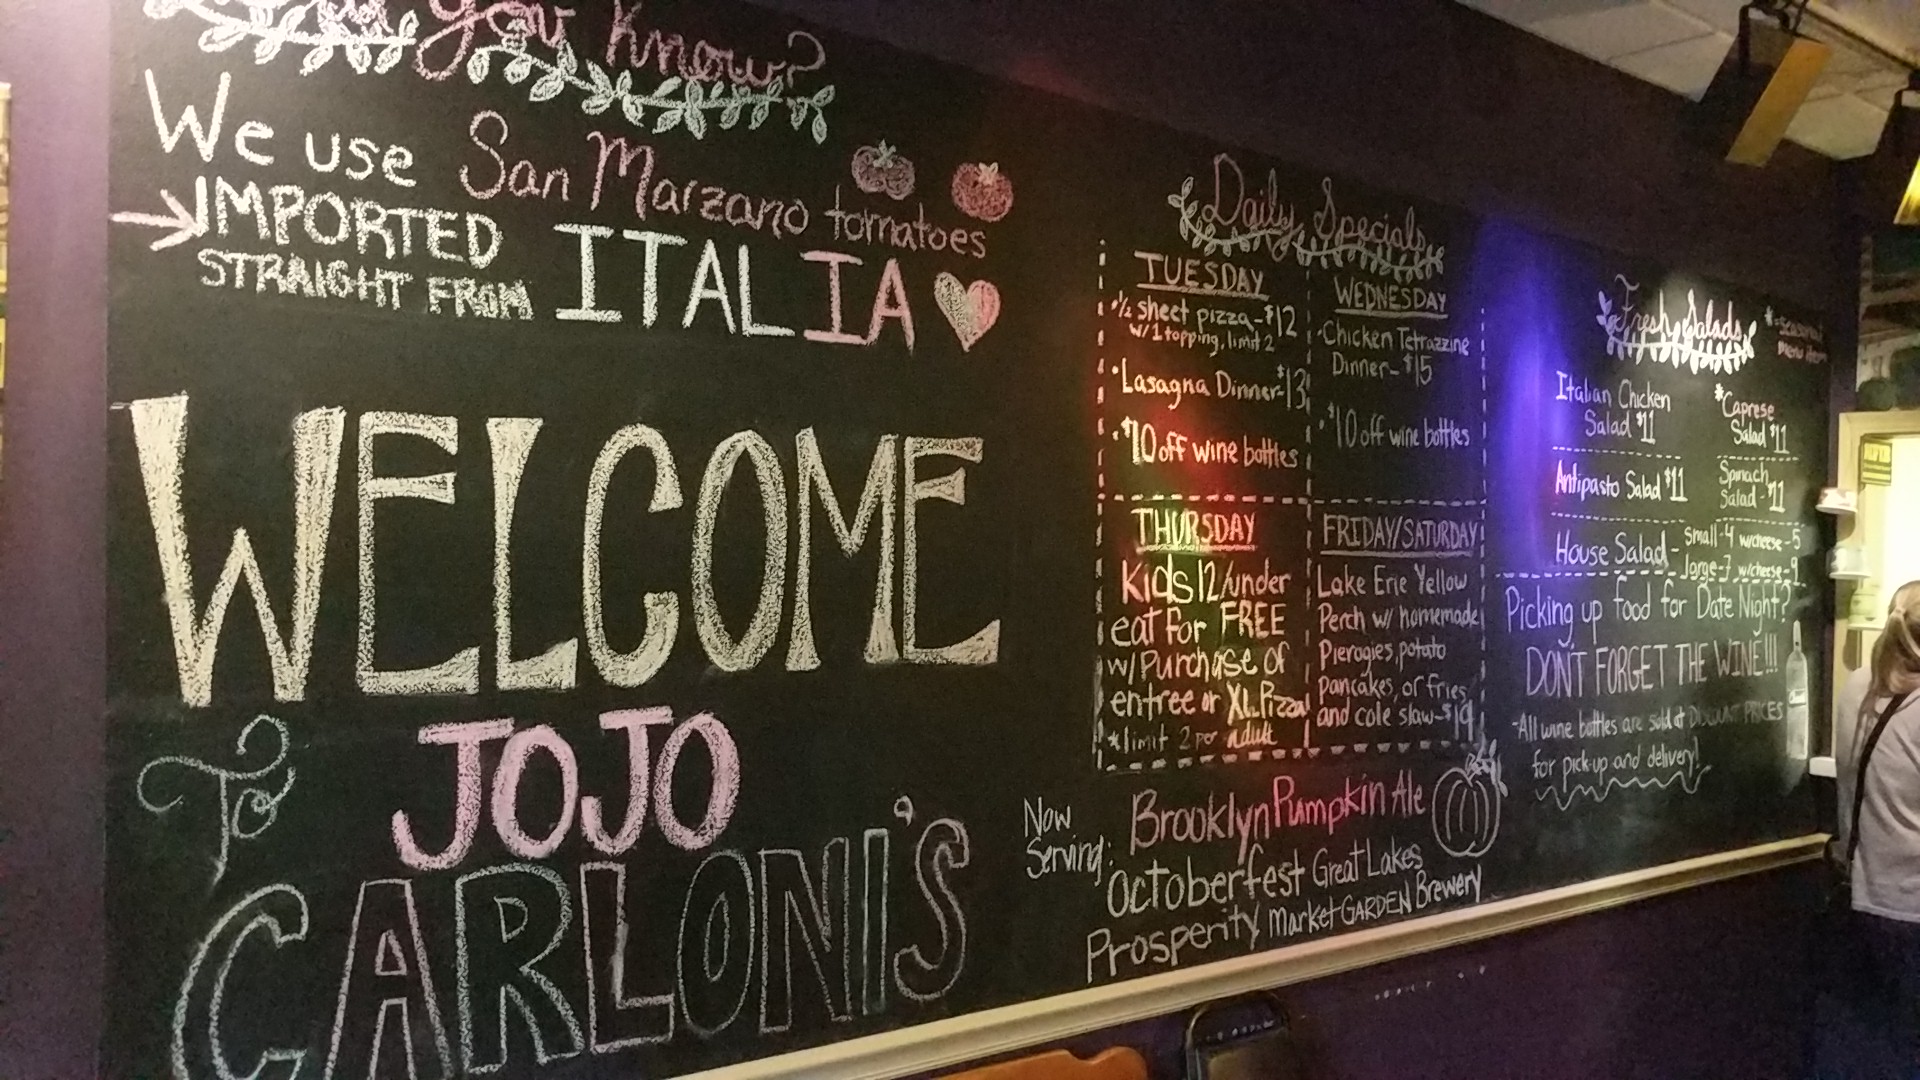 you Know?
We use San Marzano tomatoes
IMPORTED
STRAIGHT FROM ITALIA
WELCOME
To
JOJO
CARLONI'S
Daily Specials
TUESDAY
• ½ sheet pizza - $12
w/ 1 topping, limit 2
• Lasagna Dinner - $13
• $10 off wine bottles
WEDNESDAY
• Chicken Tetrazzine
Dinner - $15
• $10 off wine bottles
THURSDAY
Kids 12/under
eat for FREE
w/ Purchase of
entree or XL Pizza
*limit 2 per adult
FRIDAY/SATURDAY
Lake Erie Yellow
Perch w/ homemade
Pierogies, potato
pancakes, or fries
and cole slaw - $19
Now
Serving:
Brooklyn Pumpkin Ale
Octoberfest Great Lakes
Prosperity Market GARDEN Brewery
Fresh Salads
*= seasonal
menu items
Italian Chicken
Salad $11
*Caprese
Salad $11
Antipasto Salad $11
Spinach
Salad - $11
House Salad - small - 4 w/cheese - 5
large - 7 w/cheese - 9
Picking up food for Date Night?
DON'T FORGET THE WINE!!!
- All wine bottles are sold @ DISCOUNT PRICES
for pick-up and delivery!